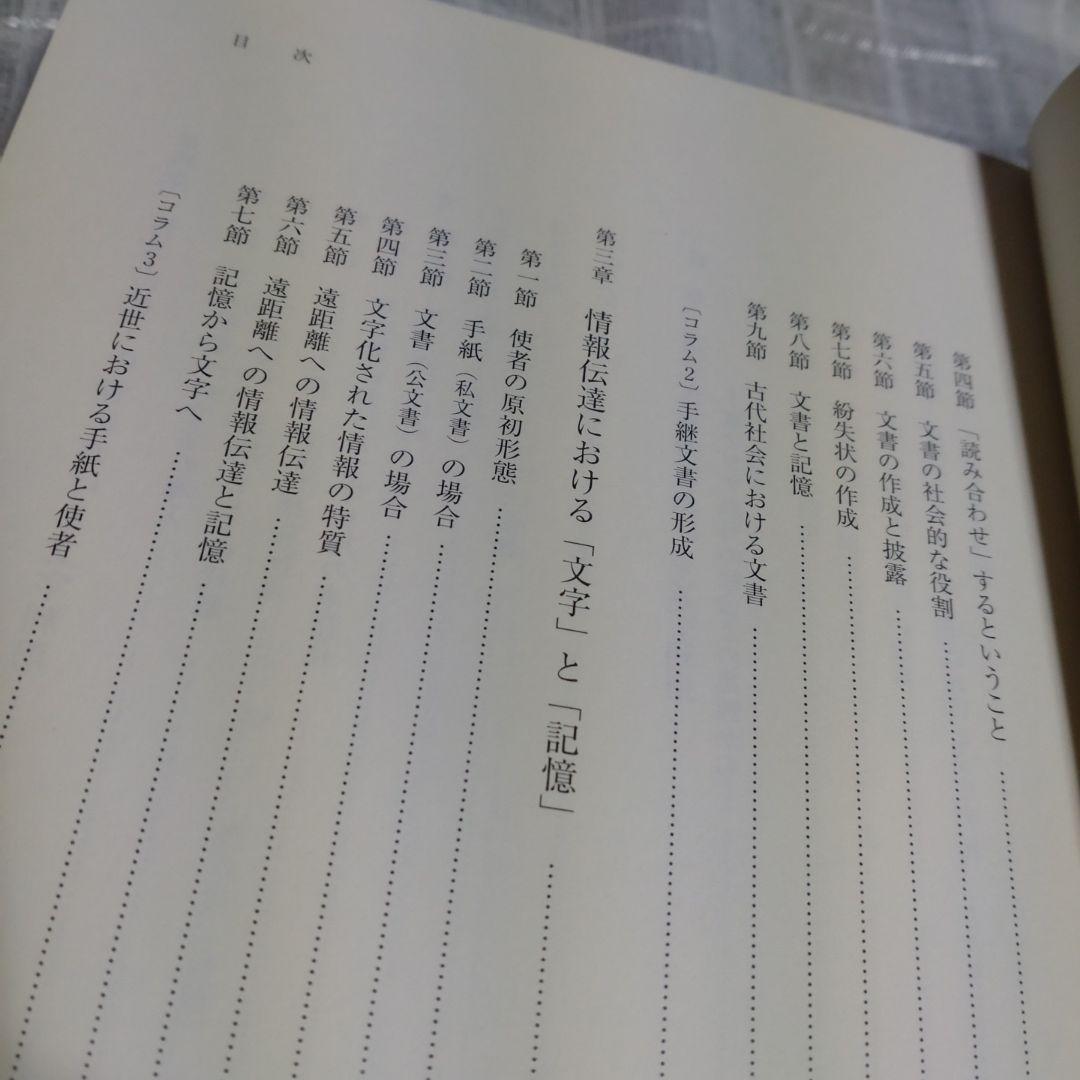 目次
第四節 「読み合わせ」するということ
第五節 文書の社会的な役割
第六節 文書の作成と披露
第七節 紛失状の作成
第八節 文書と記憶
第九節 古代社会における文書
〔コラム2〕手継文書の形成
第三章 情報伝達における「文字」と「記憶」
第一節 使者の原初形態
第二節 手紙（私文書）の場合
第三節 文書（公文書）の場合
第四節 文字化された情報の特質
第五節 遠距離への情報伝達
第六節 遠距離への情報伝達と記憶
第七節 記憶から文字へ
〔コラム3〕近世における手紙と使者